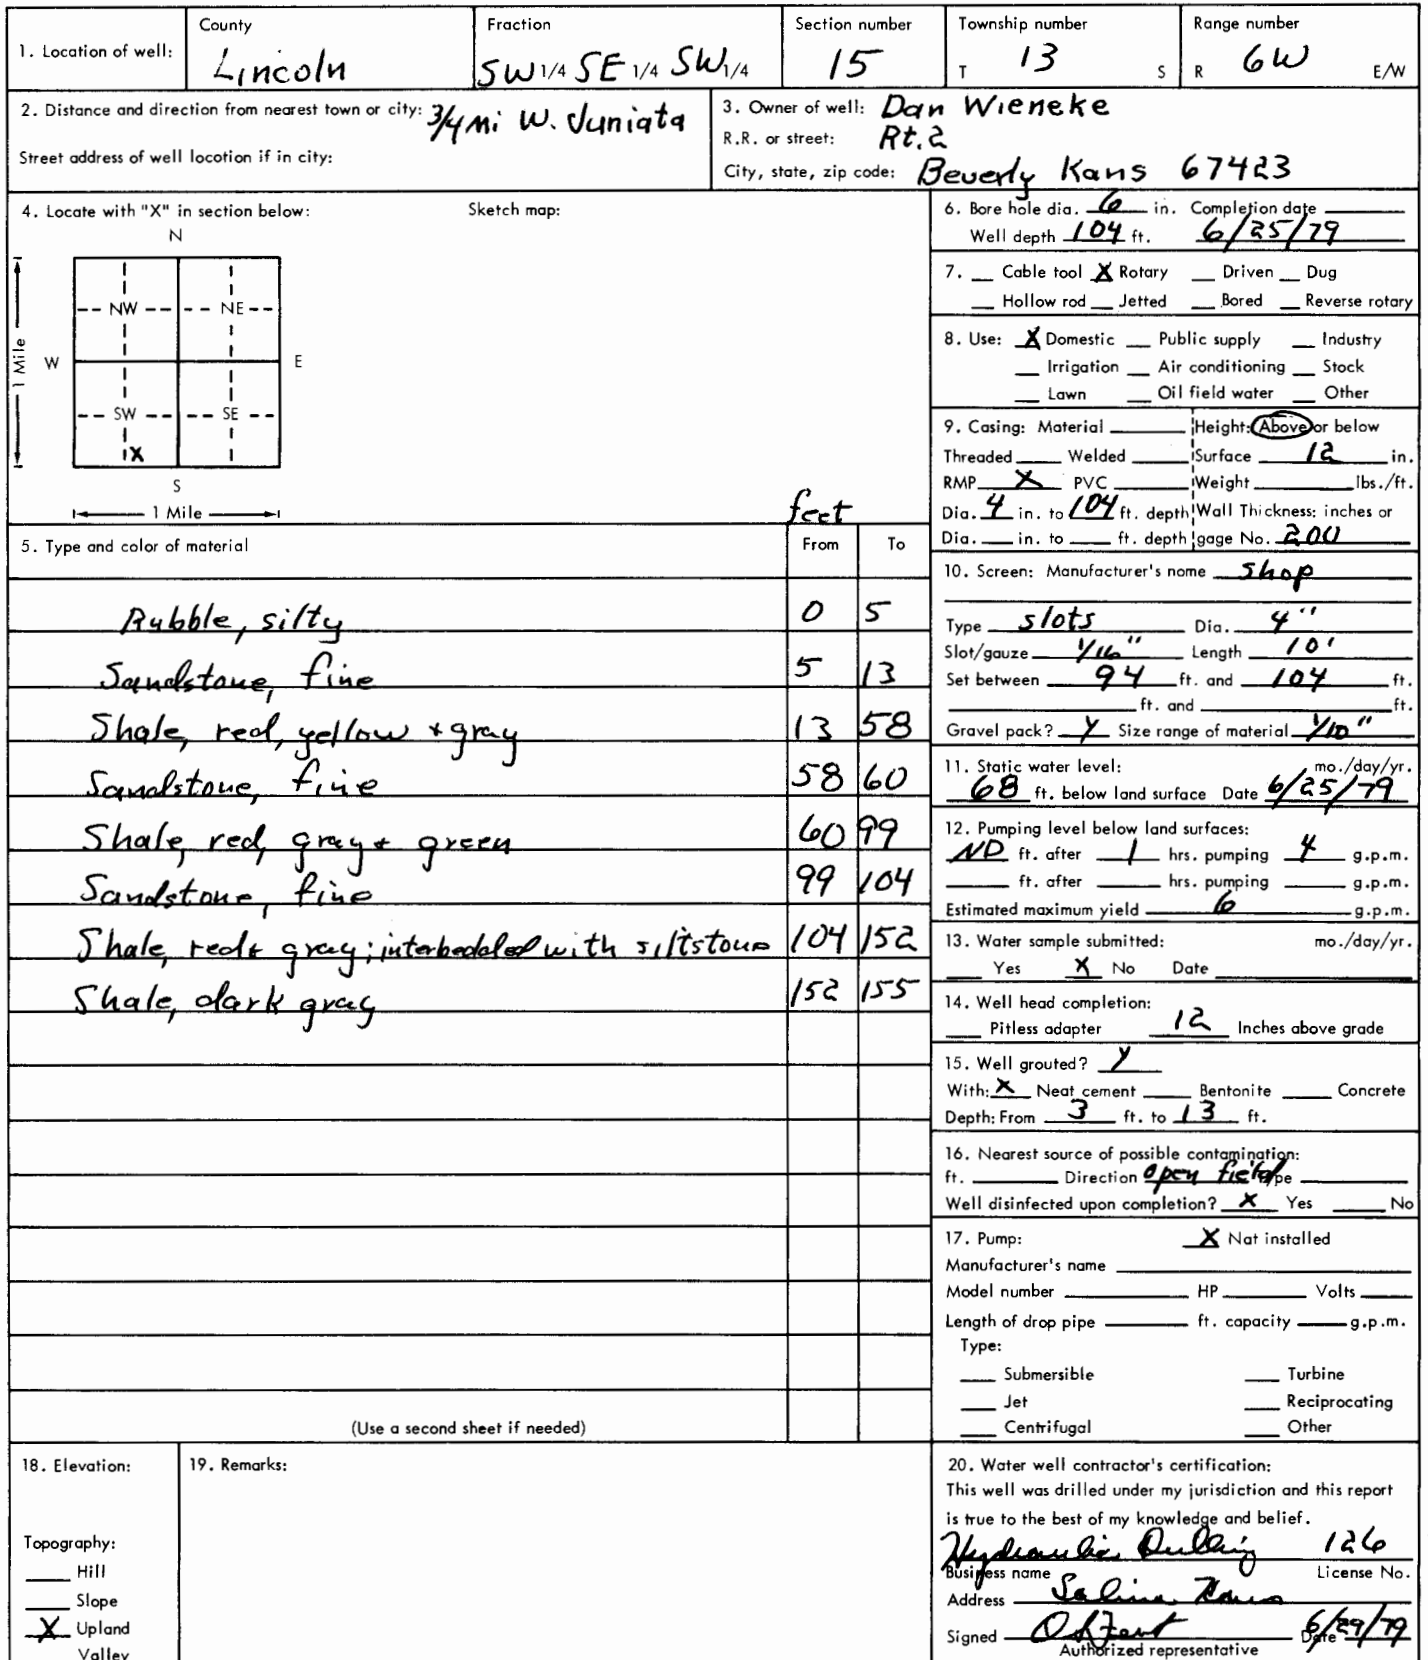 1. Location of well: County Lincoln Fraction SW 1/4 SE 1/4 SW 1/4 Section number 15 Township number T 13 S Range number R 6W E/W
2. Distance and direction from nearest town or city: 3/4 mi W. Juniata
Street address of well location if in city:
3. Owner of well: Dan Wieneke
R.R. or street: Rt.2
City, state, zip code: Beverly Kans 67423
4. Locate with "X" in section below: Sketch map:
N
NW NE
W E
1 Mile
SW SE
X
S
1 Mile
feet
5. Type and color of material From To
Rubble, silty 0 5
Sandstone, fine 5 13
Shale, red, yellow + gray 13 58
Sandstone, fine 58 60
Shale, red, gray + green 60 99
Sandstone, fine 99 104
Shale, red + gray; interbedded with siltstone 104 152
Shale, dark gray 152 155
(Use a second sheet if needed)
6. Bore hole dia. 6 in. Completion date
Well depth 104 ft. 6/25/79
7. Cable tool X Rotary Driven Dug
Hollow rod Jetted Bored Reverse rotary
8. Use: X Domestic Public supply Industry
Irrigation Air conditioning Stock
Lawn Oil field water Other
9. Casing: Material Height: Above or below
Threaded Welded Surface 12 in.
RMP X PVC Weight lbs./ft.
Dia. 4 in. to 104 ft. depth Wall Thickness: inches or
Dia. in. to ft. depth gage No. 200
10. Screen: Manufacturer's name shop
Type slots Dia. 4"
Slot/gauze 1/16" Length 10'
Set between 94 ft. and 104 ft.
ft. and ft.
Gravel pack? Y Size range of material 1/10"
11. Static water level: mo./day/yr.
68 ft. below land surface Date 6/25/79
12. Pumping level below land surfaces:
ND ft. after 1 hrs. pumping 4 g.p.m.
ft. after hrs. pumping g.p.m.
Estimated maximum yield 6 g.p.m.
13. Water sample submitted: mo./day/yr.
Yes X No Date
14. Well head completion:
Pitless adapter 12 Inches above grade
15. Well grouted? Y
With: X Neat cement Bentonite Concrete
Depth: From 3 ft. to 13 ft.
16. Nearest source of possible contamination:
ft. Direction open field Type
Well disinfected upon completion? X Yes No
17. Pump: X Not installed
Manufacturer's name
Model number HP Volts
Length of drop pipe ft. capacity g.p.m.
Type:
Submersible Turbine
Jet Reciprocating
Centrifugal Other
18. Elevation:
Topography:
Hill
Slope
X Upland
Valley
19. Remarks:
20. Water well contractor's certification:
This well was drilled under my jurisdiction and this report
is true to the best of my knowledge and belief.
Hydraulic Drilling 126
Business name License No.
Address Salina Kans
Signed Date 6/29/79
Authorized representative